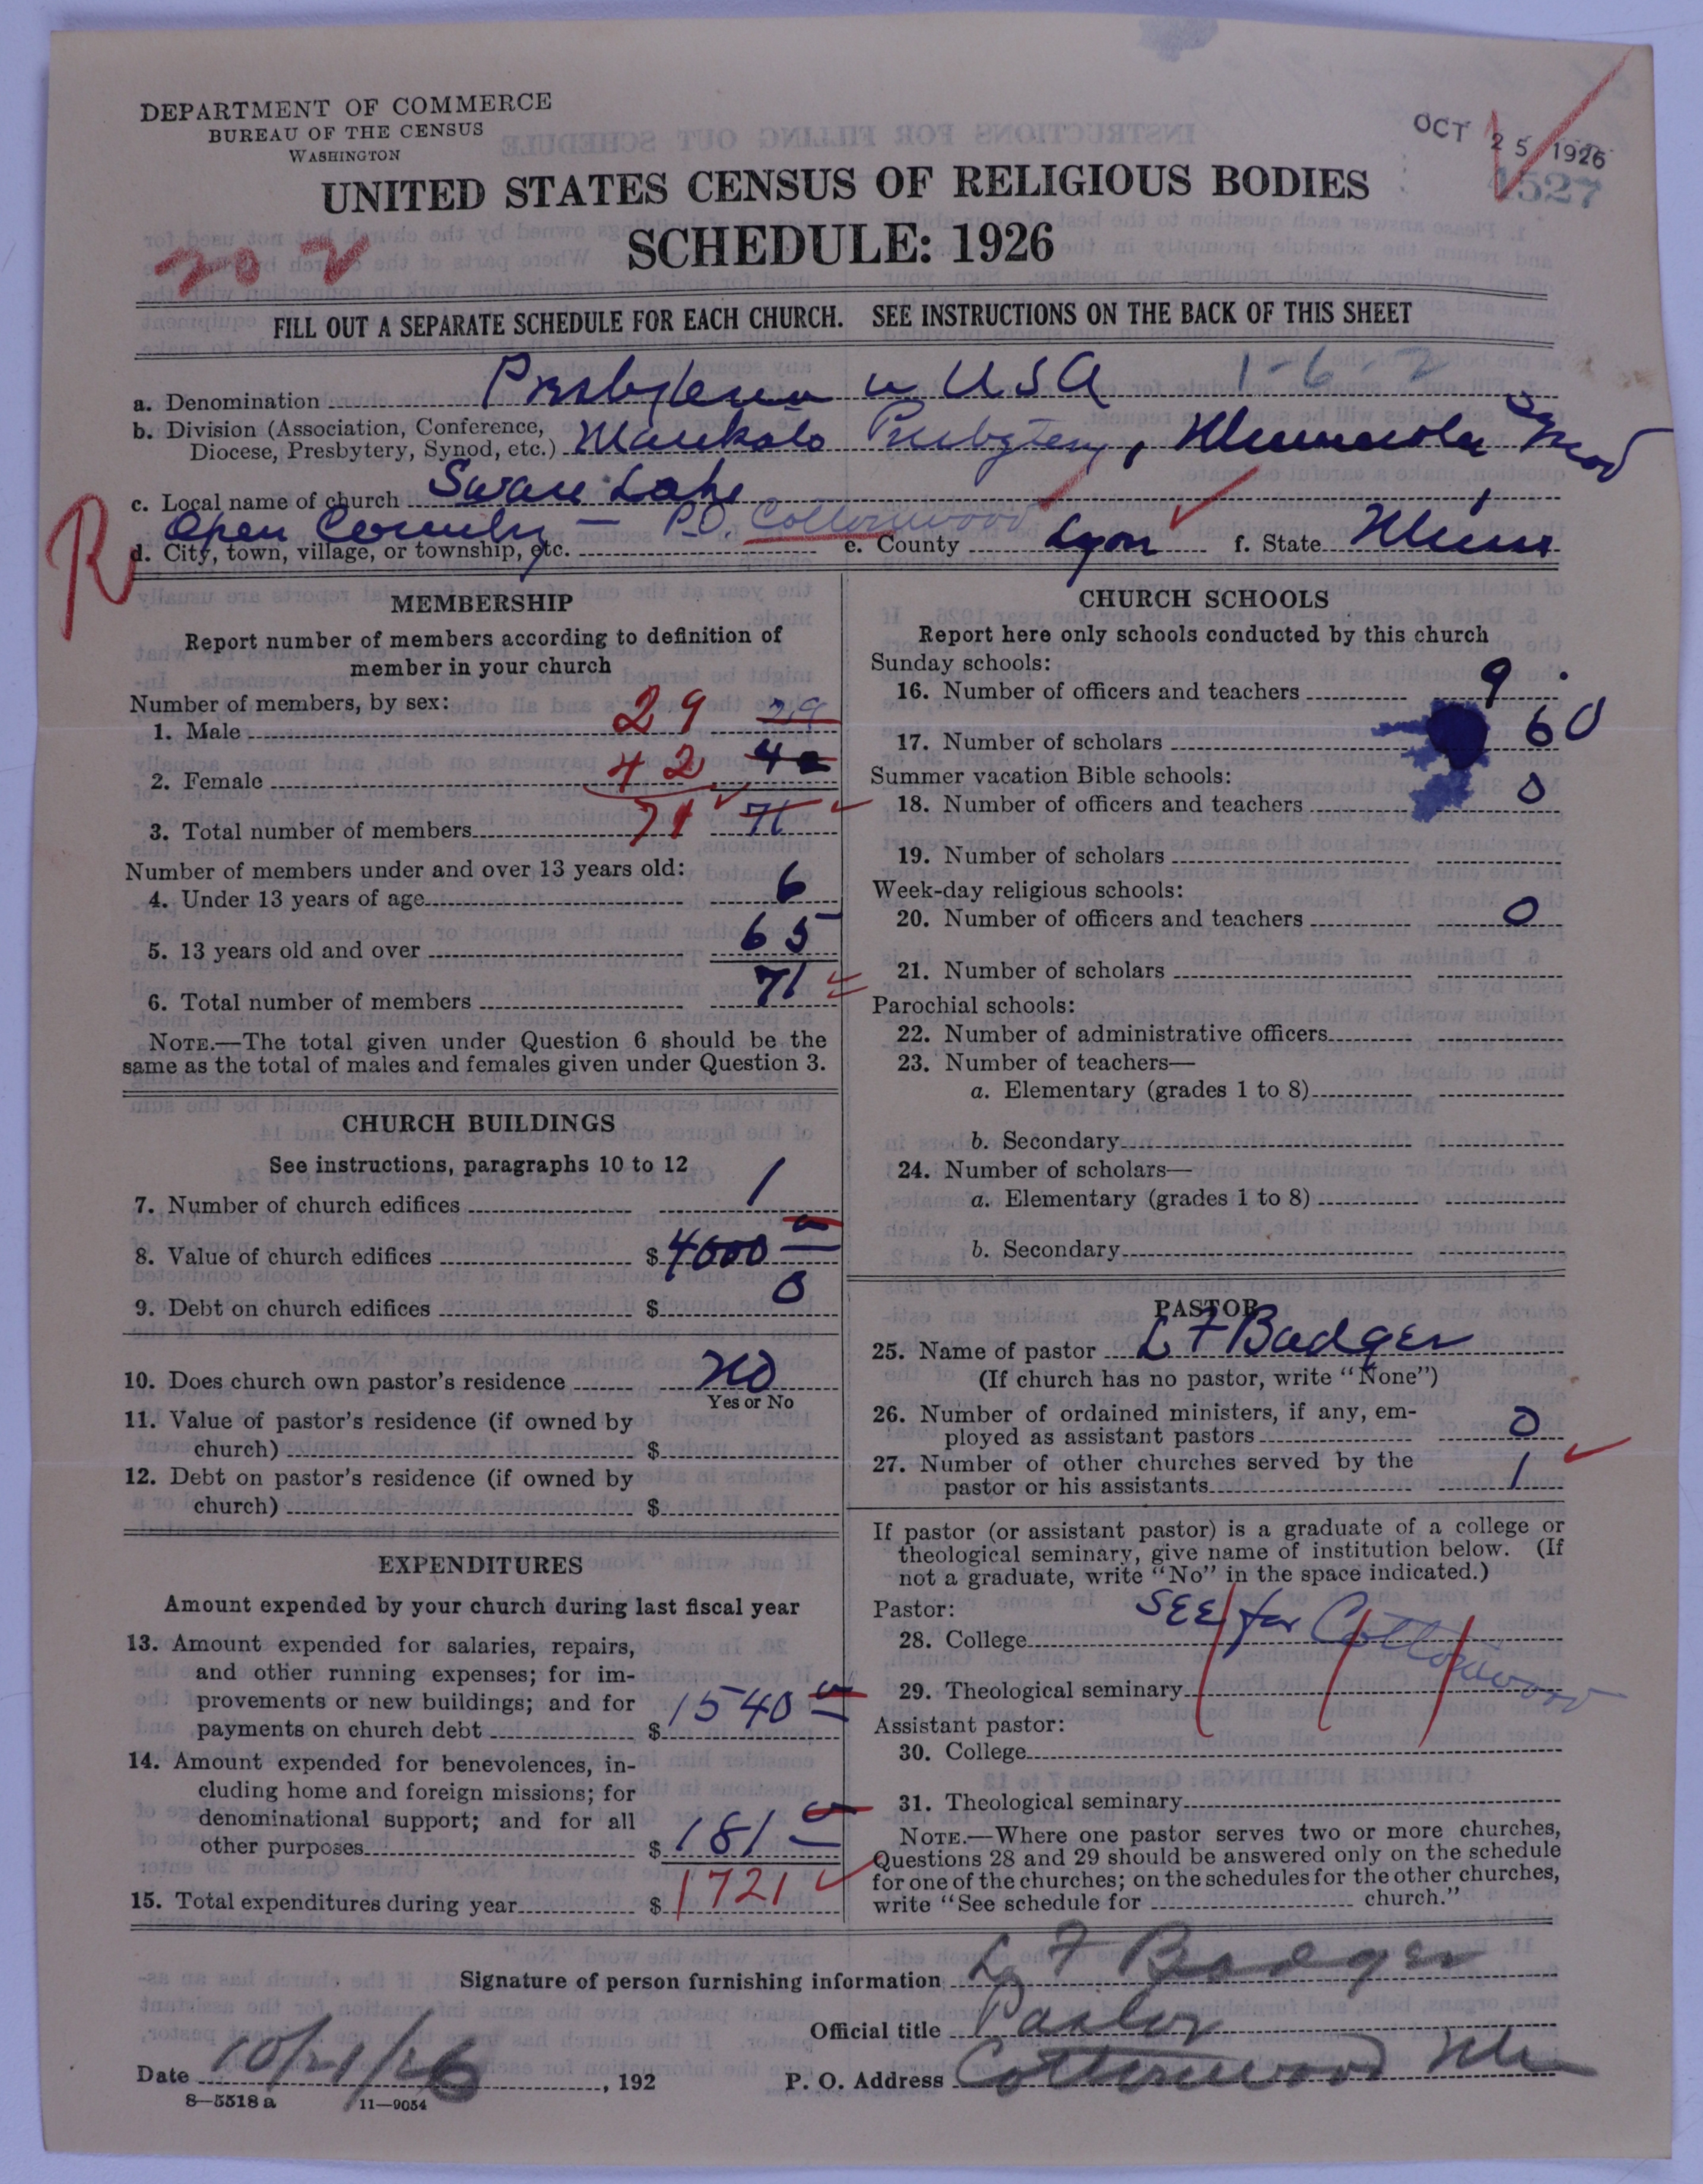 DEPARTMENT OF COMMERCE
BUREAU OF THE CENSUS
WASHINGTON
OCT 25 1926
4527
UNITED STATES CENSUS OF RELIGIOUS BODIES
SCHEDULE: 1926
FILL OUT A SEPARATE SCHEDULE FOR EACH CHURCH. SEE INSTRUCTIONS ON THE BACK OF THIS SHEET
a. Denomination Presbyterian in USA 1-6-2
b. Division (Association, Conference, Diocese, Presbytery, Synod, etc.) Mankato Presbytery, Minnesota Synod
c. Local name of church Swan Lake
R
d. City, town, village, or township, etc. Open Country - P.O. Cottonwood e. County Lyon f. State Minn
MEMBERSHIP
Report number of members according to definition of
member in your church
Number of members, by sex:
1. Male 29 29
2. Female 42 42
3. Total number of members 71 71
Number of members under and over 13 years old:
4. Under 13 years of age 6
5. 13 years old and over 65
6. Total number of members 71
NOTE.—The total given under Question 6 should be the
same as the total of males and females given under Question 3.
CHURCH BUILDINGS
See instructions, paragraphs 10 to 12
7. Number of church edifices 1
8. Value of church edifices $4000
9. Debt on church edifices $ 0
10. Does church own pastor's residence NO
Yes or No
11. Value of pastor's residence (if owned by
church) $
12. Debt on pastor's residence (if owned by
church) $
EXPENDITURES
Amount expended by your church during last fiscal year
13. Amount expended for salaries, repairs,
and other running expenses; for im-
provements or new buildings; and for
payments on church debt $ 1540
14. Amount expended for benevolences, in-
cluding home and foreign missions; for
denominational support; and for all
other purposes $ 181
15. Total expenditures during year $ 1721
CHURCH SCHOOLS
Report here only schools conducted by this church
Sunday schools:
16. Number of officers and teachers 9
17. Number of scholars 60
Summer vacation Bible schools:
18. Number of officers and teachers 0
19. Number of scholars
Week-day religious schools:
20. Number of officers and teachers 0
21. Number of scholars
Parochial schools:
22. Number of administrative officers
23. Number of teachers—
a. Elementary (grades 1 to 8)
b. Secondary
24. Number of scholars—
a. Elementary (grades 1 to 8)
b. Secondary
PASTOR
25. Name of pastor L F Badger
(If church has no pastor, write "None")
26. Number of ordained ministers, if any, em-
ployed as assistant pastors 0
27. Number of other churches served by the
pastor or his assistants 1
If pastor (or assistant pastor) is a graduate of a college or
theological seminary, give name of institution below. (If
not a graduate, write "No" in the space indicated.)
Pastor: SEE for Cottonwood
28. College
29. Theological seminary
Assistant pastor:
30. College
31. Theological seminary
NOTE.—Where one pastor serves two or more churches,
Questions 28 and 29 should be answered only on the schedule
for one of the churches; on the schedules for the other churches,
write "See schedule for church."
Signature of person furnishing information L F Badger
Official title Pastor
Date 10/21/26, 192 P. O. Address Cottonwood Minn
8—5518 a 11—9054